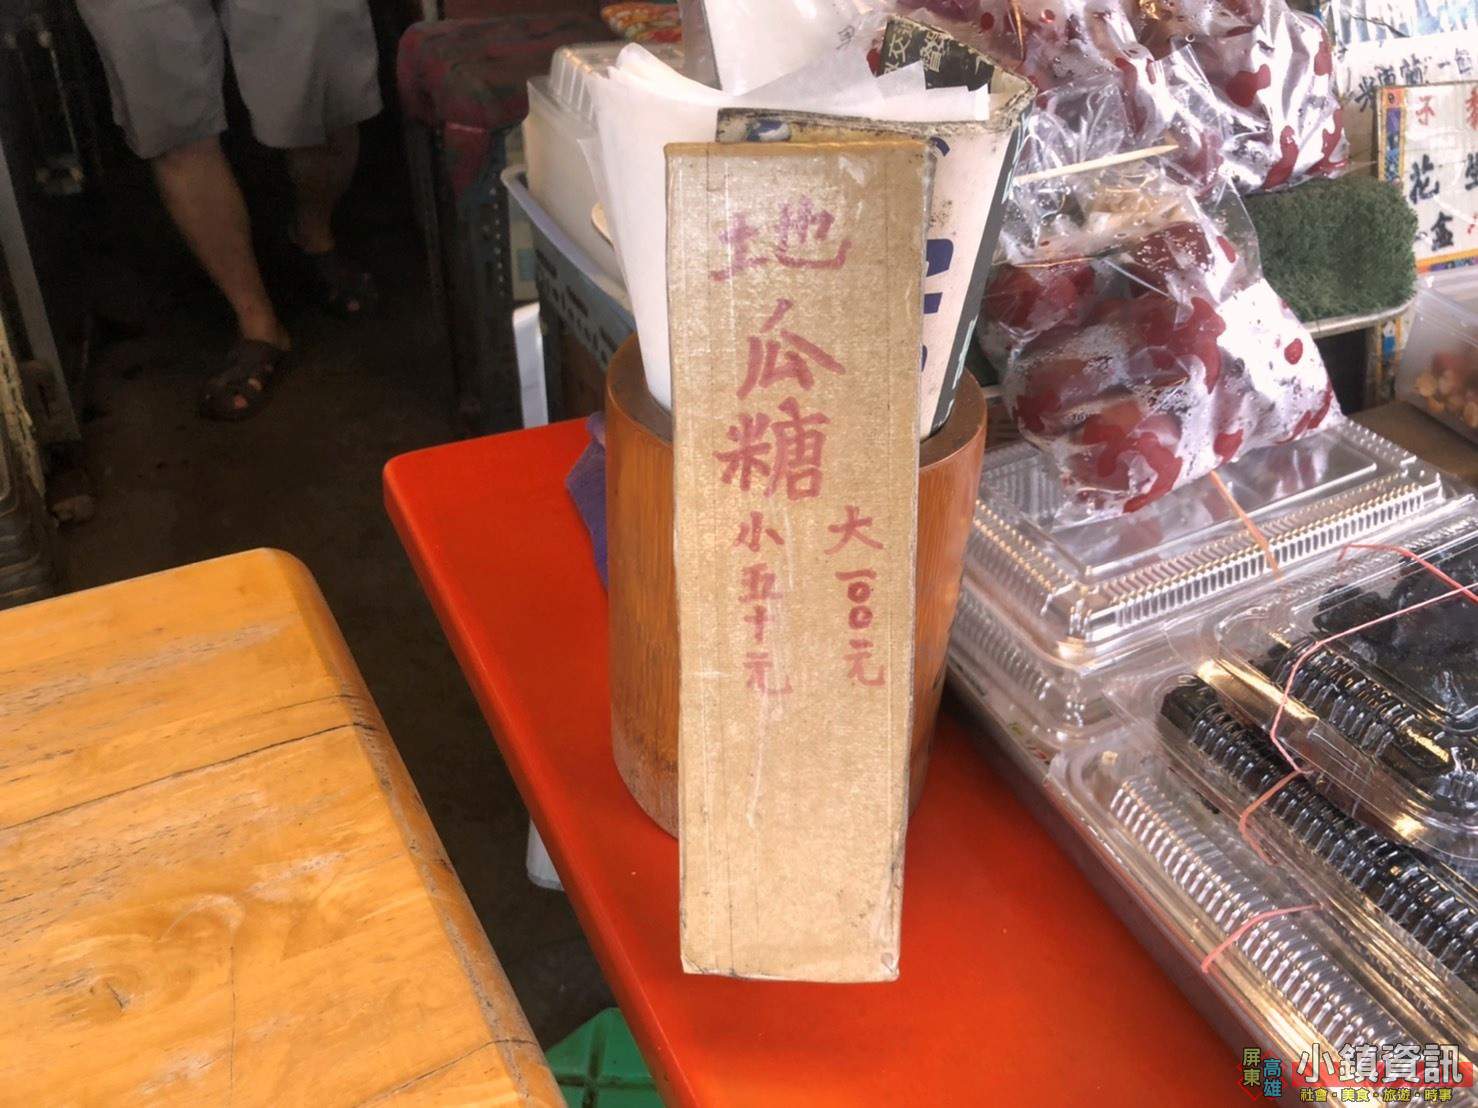 地瓜糖
大一〇〇元
小五十元
花
小鎮資訊
屏東
高雄
社會·美食·旅遊·時事